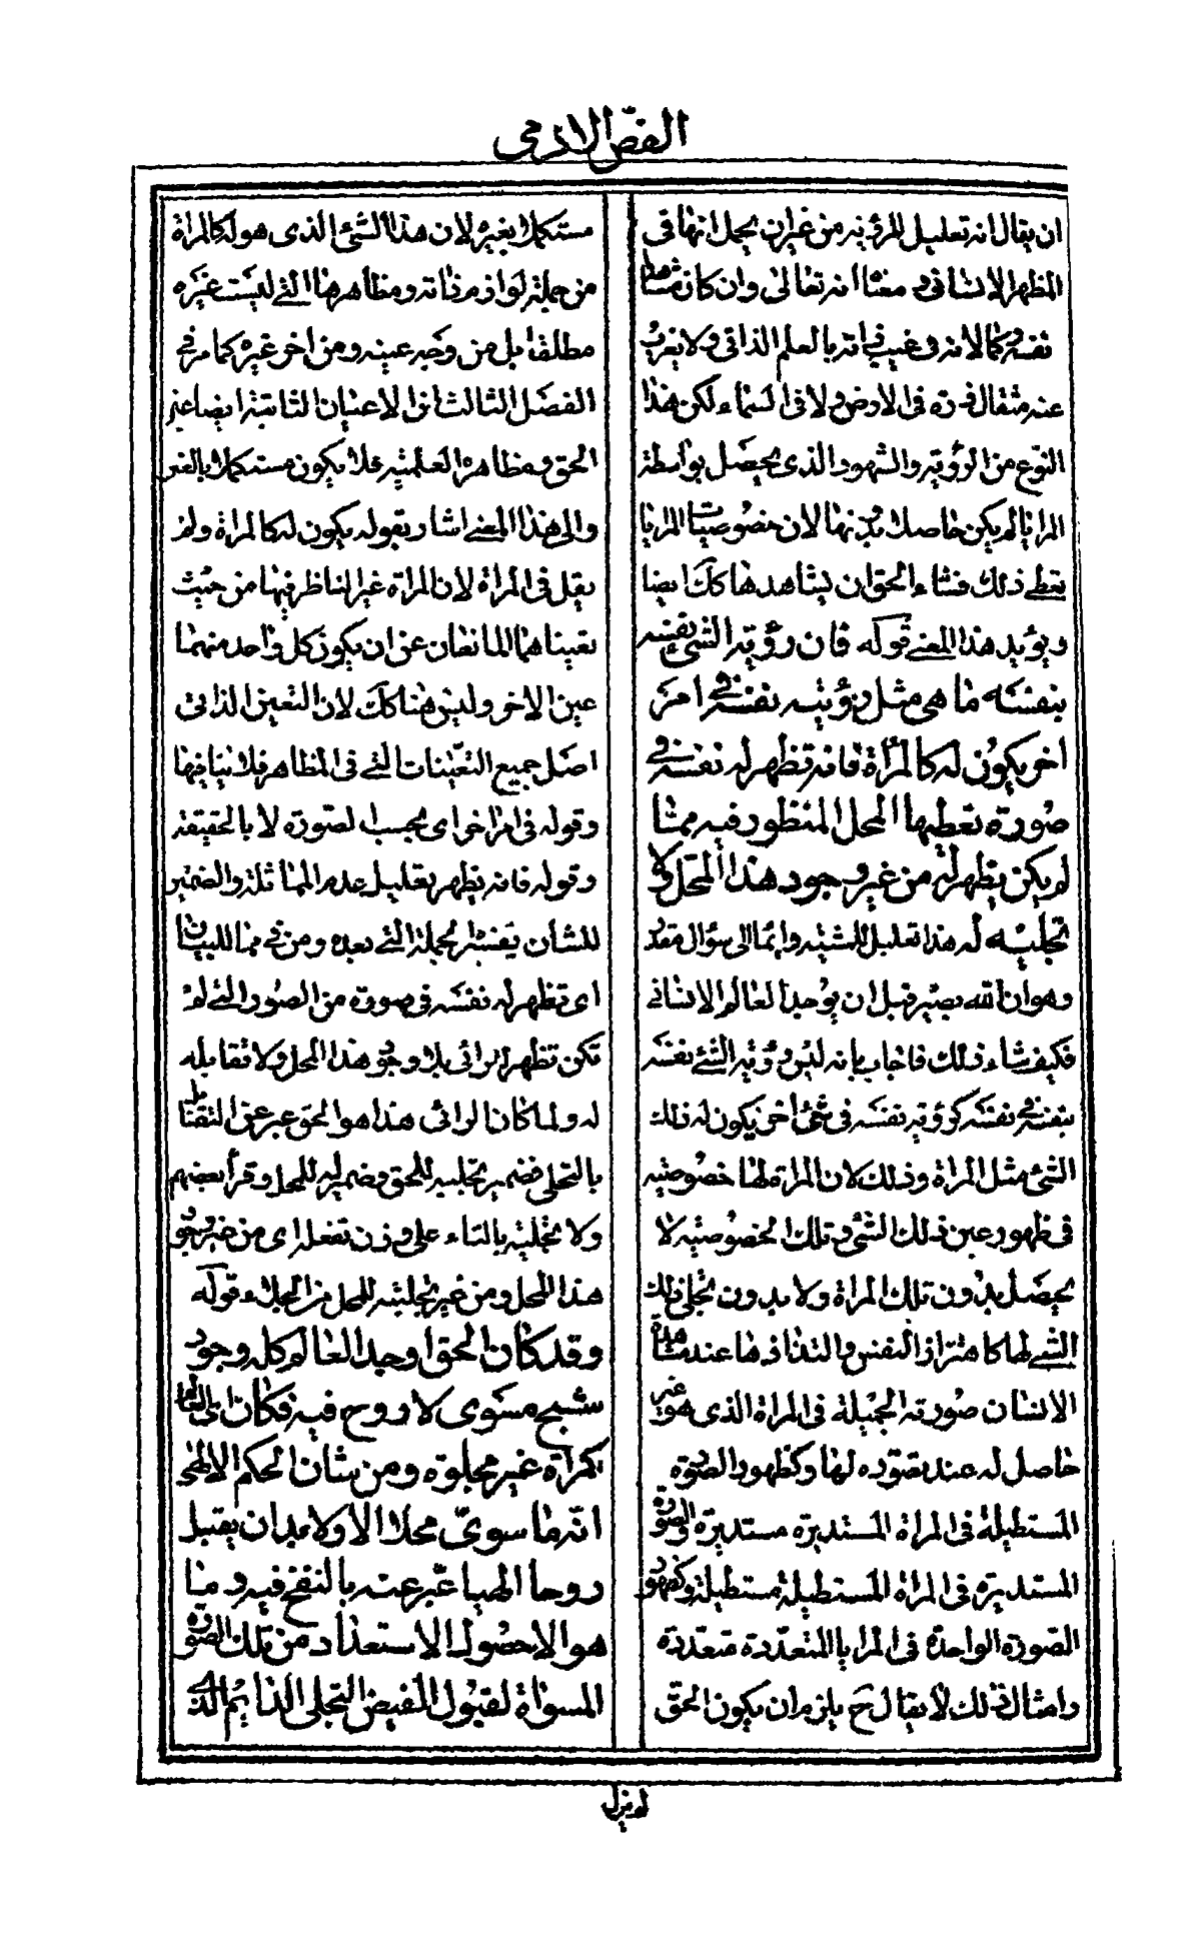 الفص الادمى
ان يقال انه تعليل للرؤية من غير ان يحمل انها فى
المظهر الانسانى و معناه انه تعالى وان كان مشاهدا
نفسه وكمالاته فى غيب ذاته بالعلم الذاتى ولا يعزب
عنه مثقال ذرة فى الارض ولا فى السماء لكن هذا
النوع من الرؤية والشهود الذى يحصل بواسطة
المرايا لم يكن حاصلا بدونها لان خصوصيات المرايا
تعطى ذلك فشاء الحق ان يشاهدها كك ايضا
ويؤيد هذا المعنى قوله فان رؤية الشئ نفسه
بنفسه ما هى مثل رؤيته نفسه فى امر
اخر يكون له كالمرأة فانه تظهر له نفسه فى
صورة تعطيها المحل المنظور فيه مما
لم يكن يظهر له من غير وجود هذا المحل ولا
تجليه له هذا تعليل للمشية وايماء الى سؤال مقدر
وهو ان الله بصير قبل ان يوجد العالم الانسانى
فكيف شاء ذلك فاجاب بانه ليس رؤية الشئ نفسه
بنفسه فى نفسه كرؤية نفسه فى شئ اخر يكون له ذلك
الشئ مثل المراة وذلك لان المراة لها خصوصية
فى ظهور عين ذلك الشئ وتلك الخصوصية لا
يحصل بدون تلك المراة ولا بدون تجلى ذلك
الشئ لها كاهتزاز النفس والتذاذها عند مشاهدة
الانسان صورته الجميلة فى المراة الذى هو غير
حاصل له عند تصوره لها وكظهور الصورة
المستطيلة فى المراة المستديرة مستديرة والصورة
المستديرة فى المراة المستطيلة مستطيلة وكظهور
الصورة الواحدة فى المرايا المتعددة متعددة
وامثال ذلك لا يقال ح يلزم ان يكون الحق
مستكملا بغيره لان هذا الشئ الذى هو له كالمراة
من جملة لوازم ذاته ومظاهرها التى ليست غيره
مطلقا بل من وجه عينه ومن اخر غيره كما مر فى
الفصل الثالث ان الاعيان الثابتة ايضا عين
الحق ومظاهره العلمية فلا يكون مستكملا بالغير
والى هذا المعنى اشار بقوله يكون له كالمراة ولم
يقل فى المراة لان المراة غير الناظر فيها من حيث
تعيناهما المانعان عن ان يكون كل واحد منهما
عين الاخر وليس هنا كك لان التعين الذاتى
اصل جميع التعينات التى فى المظاهر فلا ينافيها
وقوله فى امر اخر اى بحسب الصورة لا بالحقيقة
وقوله فانه يظهر تعليل عدم المماثلة والضمير
للشأن يفسره الجملة التى بعده ومن فى مما للبيان
اى تظهر له نفسه فى صورة من الصور التى لم
تكن تظهر للرائى بلا وجود هذا المحل ولا تقابله
له ولما كان الرائى هذا هو الحق عبر عن التقابل
بالتجلى فضمير تجليه للحق وضمير له للمحل وقرأ بعضهم
ولا تجلية بالتاء على وزن تفعلة اى من غير وجود
هذا المحل ومن غير تجليته للمحل من الجلاء قوله
وقد كان الحق اوجد العالم كله وجود
شبح مسوى لا روح فيه فكان
كمرآة غير مجلوة ومن شان الحكم الالهى
انه ما سوى محلا الا ولا بد ان يقبل
روحا الهيا عبر عنه بالنفخ فيه وما
هو الا حصول الاستعداد من تلك الصورة
المسواة لقبول الفيض التجلى الدائم الذى
لم يزل